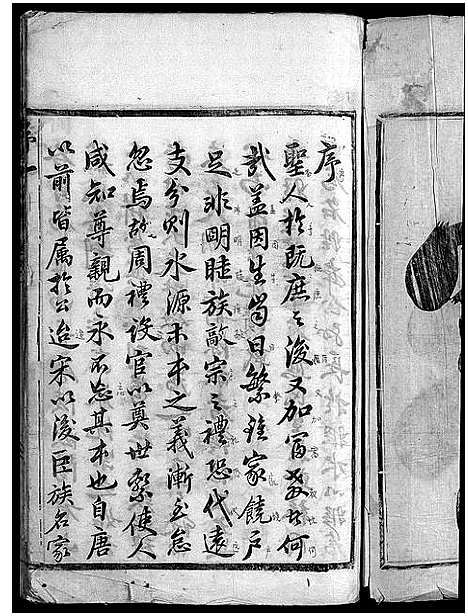 序
聖人於既庶之後又加富教者何
哉盖因生齒日繁雖家饒户
足非明睦族敬宗之禮恐代遠
支分则水源木本之義漸至怠
忽焉故周禮設官以奠世繫使人
咸知尊親而永不忘其本也自唐
以前皆属於公迨宋以後臣族名家